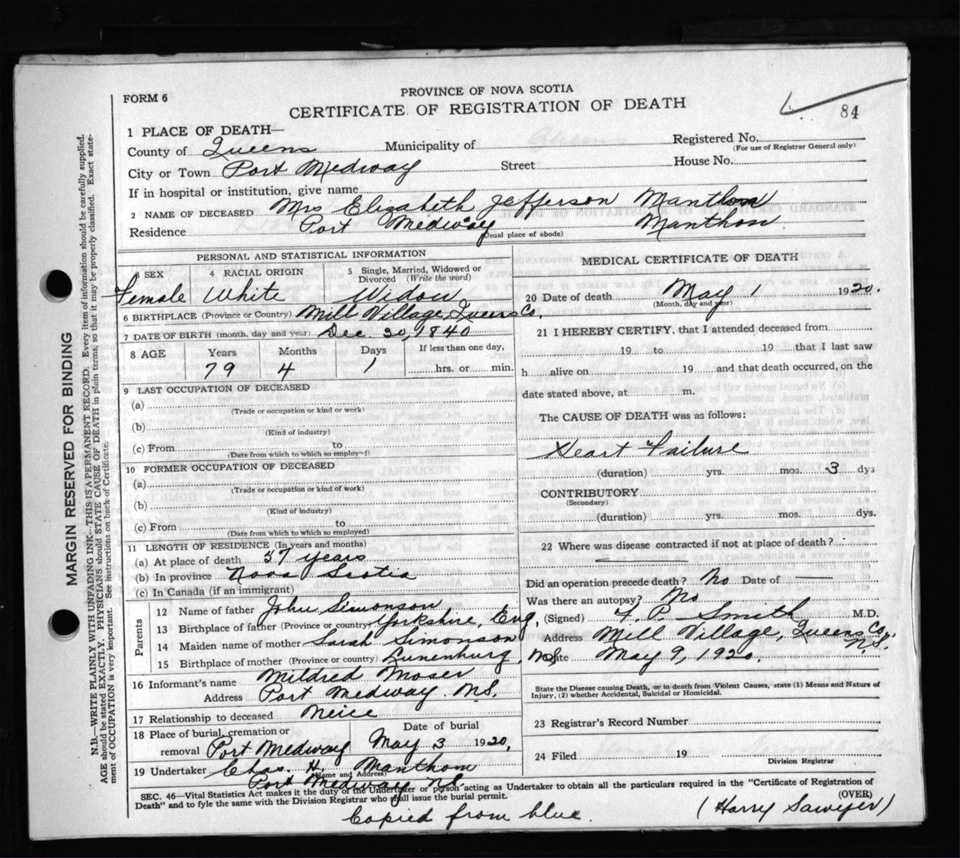 PROVINCE OF NOVA SCOTIA
FORM 6
CERTIFICATE OF REGISTRATION OF DEATH
84
1 PLACE OF DEATH—
Registered No.
(For use of Registrar General only)
County of Queens Municipality of
City or Town Port Medway Street House No.
If in hospital or institution, give name
2 NAME OF DECEASED Mrs Elizabeth Jefferson Manthon
Residence Port Medway Manthon
(Usual place of abode)
PERSONAL AND STATISTICAL INFORMATION
3 SEX 4 RACIAL ORIGIN 5 Single, Married, Widowed or Divorced (Write the word)
Female White Widow
6 BIRTHPLACE (Province or Country) Mill Village, Queens Co.
7 DATE OF BIRTH (month, day and year) Dec 30, 1840
8 AGE Years Months Days If less than one day,
79 4 1 hrs. or min.
9 LAST OCCUPATION OF DECEASED
(a)
(Trade or occupation or kind or work)
(b)
(Kind of industry)
(c) From to
(Date from which to which so employed)
10 FORMER OCCUPATION OF DECEASED
(a)
(Trade or occupation or kind of work)
(b)
(Kind of industry)
(c) From to
(Date from which to which so employed)
11 LENGTH OF RESIDENCE (In years and months)
(a) At place of death 57 years
(b) In province Nova Scotia
(c) In Canada (if an immigrant)
Parents
12 Name of father John Simonson
13 Birthplace of father (Province or country) Yorkshire, Eng.
14 Maiden name of mother Sarah Simonson
15 Birthplace of mother (Province or country) Lunenburg,
16 Informant's name Mildred Moser
Address Port Medway, N.S.
17 Relationship to deceased Neice
18 Place of burial, cremation or removal Port Medway Date of burial May 3 1920,
19 Undertaker Chas. H. Manthom
(Name and Address)
Port Medway N.S.
MEDICAL CERTIFICATE OF DEATH
20 Date of death May 1 1920.
(Month, day and year)
21 I HEREBY CERTIFY, that I attended deceased from
19 to 19 that I last saw
h alive on 19 and that death occurred, on the
date stated above, at m.
The CAUSE OF DEATH was as follows:
Heart Failure
(duration) yrs. mos. 3 dys
CONTRIBUTORY
(Secondary)
(duration) yrs. mos. dys.
22 Where was disease contracted if not at place of death?
Did an operation precede death? No Date of —
Was there an autopsy? No
(Signed) Smith M.D.
Address Mill Village, Queens Co., N.S.
May 9, 1920.
State the Disease causing Death, or in death from Violent Causes, state (1) Means and Nature of
Injury, (2) whether Accidental, Suicidal or Homicidal.
23 Registrar's Record Number
24 Filed 19
Division Registrar
SEC. 46—Vital Statistics Act makes it the duty of the Undertaker or person acting as Undertaker to obtain all the particulars required in the "Certificate of Registration of
Death" and to fyle the same with the Division Registrar who shall issue the burial permit.
(OVER)
Copied from blue.
(Harry Sawyer)
MARGIN RESERVED FOR BINDING
N.B.—WRITE PLAINLY WITH UNFADING INK—THIS IS A PERMANENT RECORD. Every item of information should be carefully supplied.
AGE should be stated EXACTLY. PHYSICIANS should STATE CAUSE OF DEATH in plain terms, so that it may be properly classified. Exact state-
ment of OCCUPATION is very important. See instructions on back of Certificate.